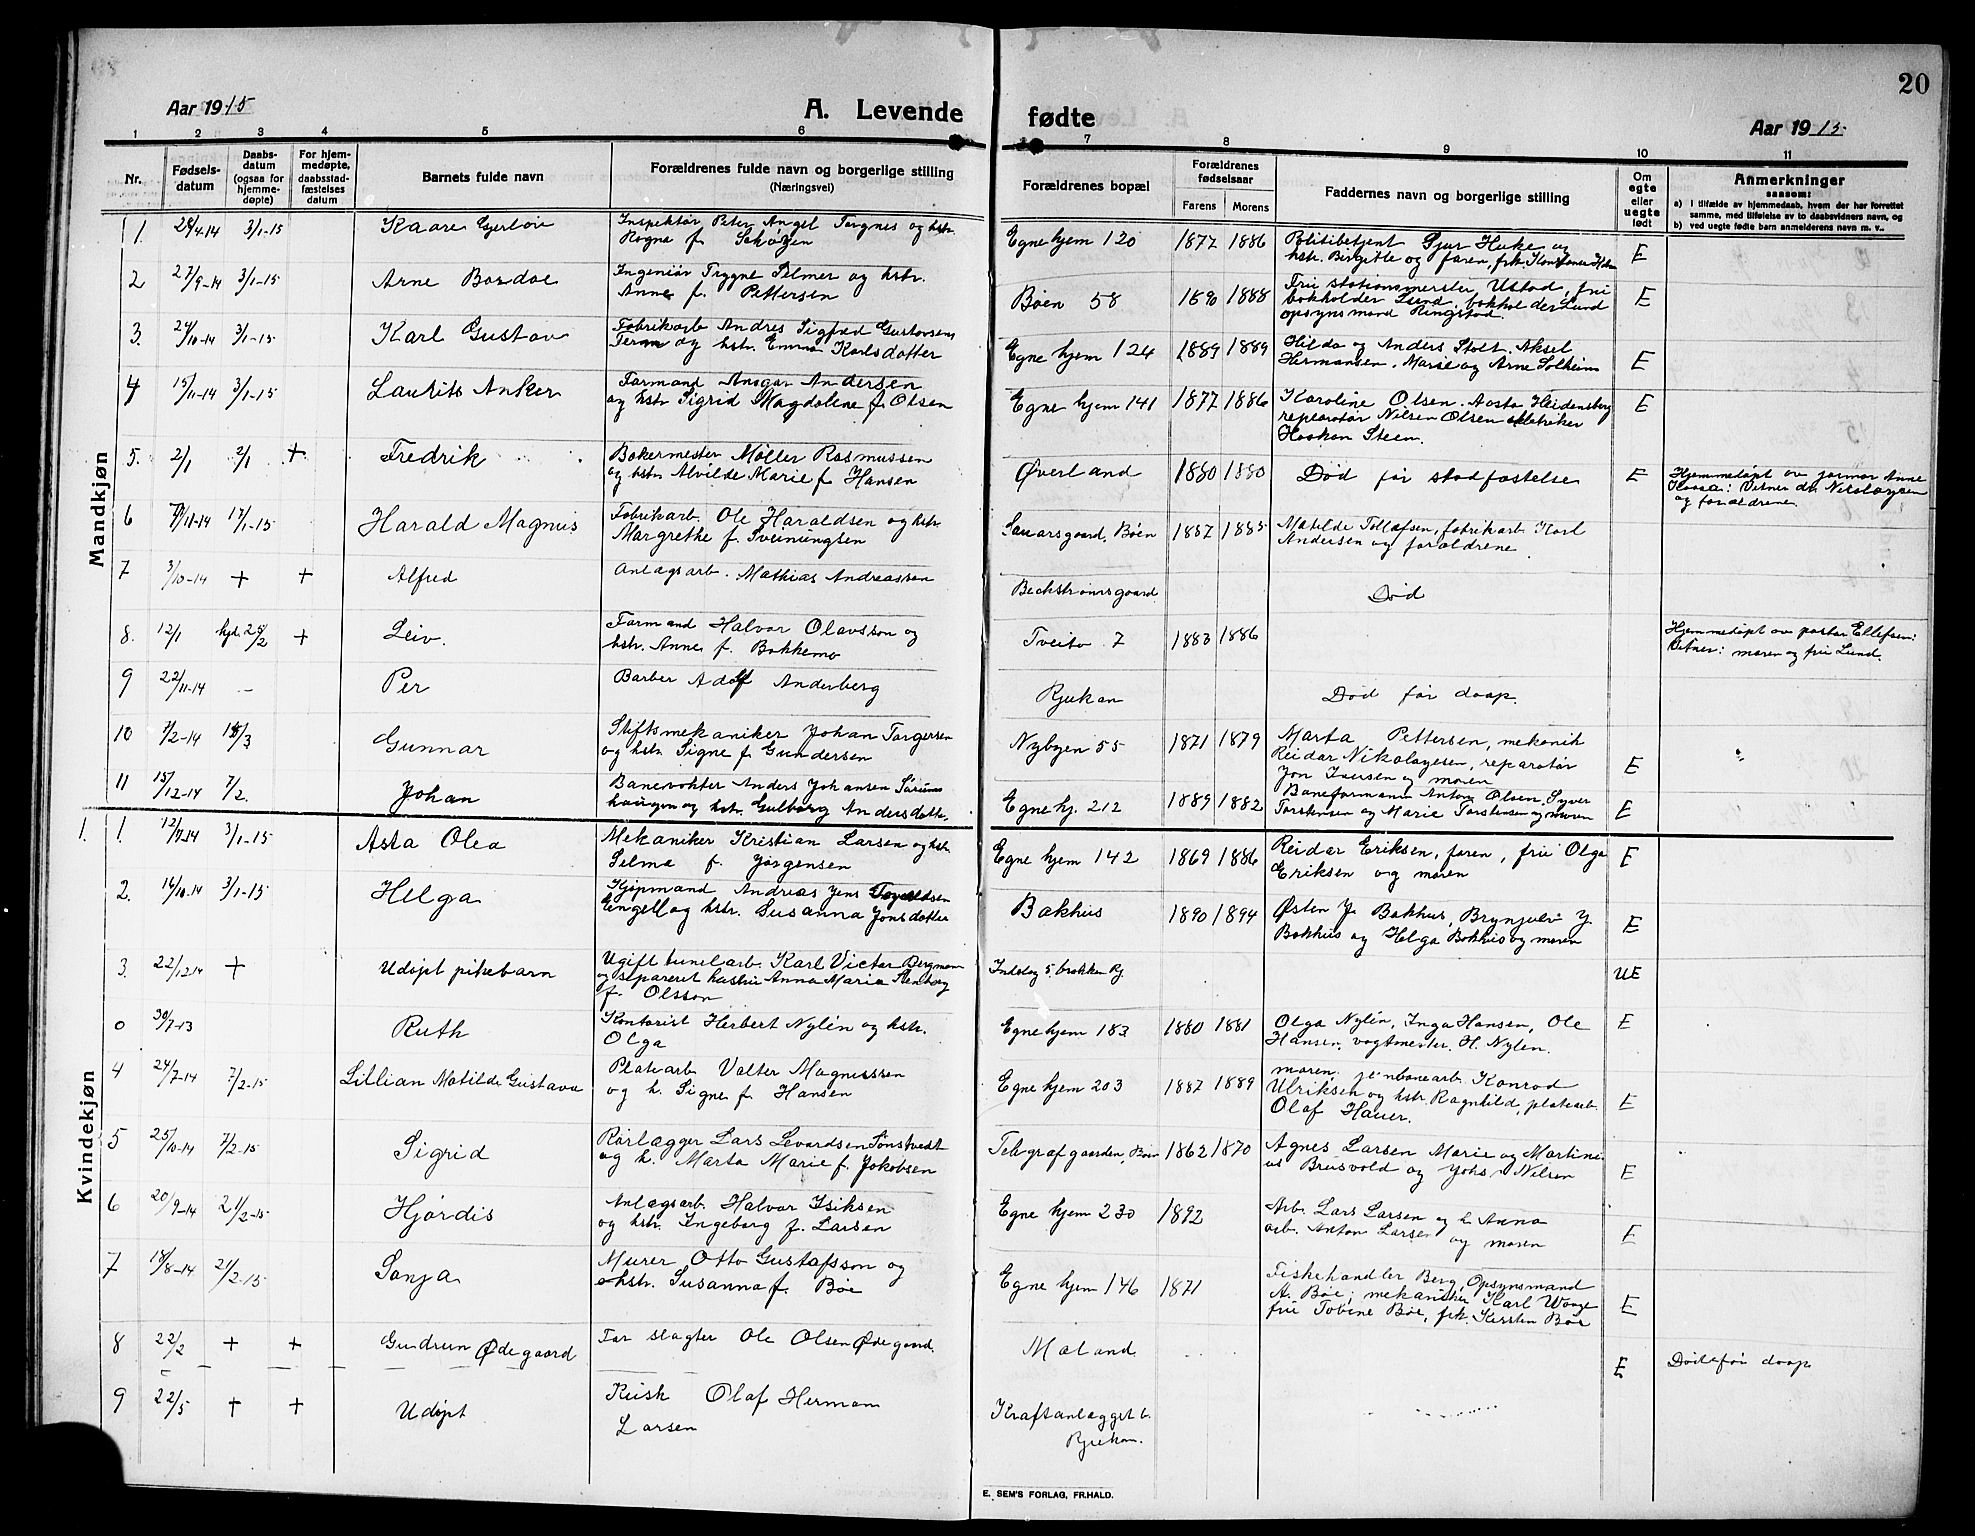 20
Aar 1915
A. Levende fødte
Aar 1915
1 2 3 4 5 6 7 8 9 10 11
Nr.
Fødsels-
datum
Daabs-
datum
(ogsaa for
hjemme-
døpte)
For hjem-
medøpte,
daabsstad-
fæstelses
datum
Barnets fulde navn
Forældrenes fulde navn og borgerlige stilling
(Næringsvei)
Forældrenes bopæl
Forældrenes
fødselsaar
Farens Morens
Faddernes navn og borgerlige stilling
Om
egte
eller
uegte
født
Anmerkninger
saasom:
a) i tilfælde av hjemmedaab, hvem der har forrettet
samme, med tilføielse av to daabsvidners navn, og
b) ved uegte fødte barn anmelderens navn m. v..
Mandkjøn
1. 3/1-15 Kaare
Inspektør Peter Angel Torgnes og hstr.
Rogna f.
Egne hjem 120 1877 1886
Politibetjent Gjur Huke og
hstr. Birgitte og faren, frk.
E
2 27/9-14 3/1-15 Arne
Ingeniør Trygve Selmer og hstr.
Anne f. Pettersen
Bøen 58 1890 1888
Fru stationsmester Ustad, fru
bokholder Lund, bokholder Lund
opsynsmand Ringstad.
E
3. 24/10-14 3/1-15 Karl Gustav
Fabrikarb. Andres Sigfred Gustavsen
og hstr. Emma Karlsdatter
Egne hjem 124 1889 1889
Hilda og Anders Stolt. Aksel
Hermansen. Marie og Arne Solheim
E
4 15/11-14 3/1-15 Laurits Anker
Formand Ansgar Andersen
og hstr. Sigrid Magdalene f. Olsen
Egne hjem 141 1877 1886
Karoline Olsen. Aasta Heidensberg
reparatør Nilsen Olsen elektriker
Haakon Steen.
E
5. 2/1 2/1 + Fredrik
Bakermester Møller Rasmussen
og hstr. Alvilde Marie f. Hansen
Øverland 1880 1880
Død før stadfæstelse
E
Hjemmedøpt av jormor Anne
og forældrene.
6 17/1-15 Harald Magnus
Fabrikarb. Ole Haraldsen og hstr
Margrethe f. Sveinungsen
Bøen 1887 1885
Matilde Tollefsen, fabrikarb. Karl
Andersen og forældrene.
7 3/10-14 + + Alfred
Anlægsarb. Mathias Andreassen
Beckstrømsgaard
Død
8. 12/1 hjd. 25/2 + Leiv.
Formand Halvor Olavsson og
hstr. Anne f. Bakkemo
Tveito 7 1883 1886
Hjemmedøpt av pastor Ellefsen:
Vitner: moren og fru Lund.
9 22/11-14 – Per
Barber Adolf Anderberg
Rjukan
Død før daap.
10 7/2-14 Gunnar
Skiftsmekaniker Johan Torgersen
og hstr Signe f. Gundersen
Nybyen 55 1871 1879
Marta Pettersen, mekanik
Reidar Nikolaysen, reparatør
Jon Iversen og moren
E
11 15/12-14 7/2. Johan
Banevokter Anders Johansen Sørum
haugen og hstr. Gulborg Andersdatter
Egnehj. 212 1889 1882
Baneformann Anton Olsen, Syver
Torstensen og Marie Torstensen og moren
E
Kvindekjøn
1. 1. 12/7-14 3/1-15 Asta Olea
Mekaniker Kristian Larsen og hstr.
Selma f. Jørgensen
Egne hjem 142 1869 1886
Reidar Eriksen, faren, frü Olga
Eriksen og moren
E
2. 14/10-14 3/1-15 Helga
Kjøpmand Andreas Jens
Engell og hstr. Susanna Jonsdatter
Bakhus 1890 1894
Østen J. Bakhus, Brynjulv J.
Bakhus og Helga Bakhus og moren
E
3. 22/12 14 + Udøpt pikebarn
Ugift tunelarb. Karl Victor Bergman
og separeret hustru Anna Maria
f. Olsson
Indslag 5, brakken Rj.
UE
0 30/7-13 Ruth
Kontorist Herbert Nylén og hstr.
Olga
Egne hjem 183 1880 1881
Olga Nylén, Inga Hansen, Ole
Hansen, vagtmester. H. Nylén.
E
4 24/7-14 7/2-15 Lillian Matilde Gustava
Platearb. Valter Magnussen
og h. Signe f. Hansen
Egne hjem 203 1887 1889
moren, jernbanearb. Konrad
Ulriksen og hstr. Ragnhild, platearb.
Olaf Hauer.
E
5 25/10-14 7/2-15 Sigrid
Rørlægger Lars Levardsen Sønstvedt
og h. Marta Marie f. Jakobsen
Telegrafgaarden, Bøen 1862 1870
Agnes Larsen Marie og Martine
us Brusvold og Johs. Nilsen
E
6 20/9-14 21/2-15 Hjørdis
Anlægsarb. Halvor Isiksen
og hstr. Ingeborg f. Larsen
Egne hjem 230 1892
Arb. Lars Larsen og h. Anna
arb. Anton Larsen og moren
E
7 18/8-14 21/2-15 Sonja
Murer Otto Gustafsson og
hstr. Susanna f. Bøe
Egne hjem 146 1871
Fiskehandler Berg, Opsynsmand
A. Bøe, mekaniker Karl Waage
frü Tobine Bøe, frk. Kirsten Bøe
E
8 22/2 + + Gudrun Ødegaard
Far slagter Ole Olsen Ødegaard.
Mæland
E
Døde før daap
9 22/5 + + Udøpt
Kusk Olaf Herman
Larsen
Kraftanlægget b.
Rjukan.
E. SEM'S FORLAG, FR.HALD.